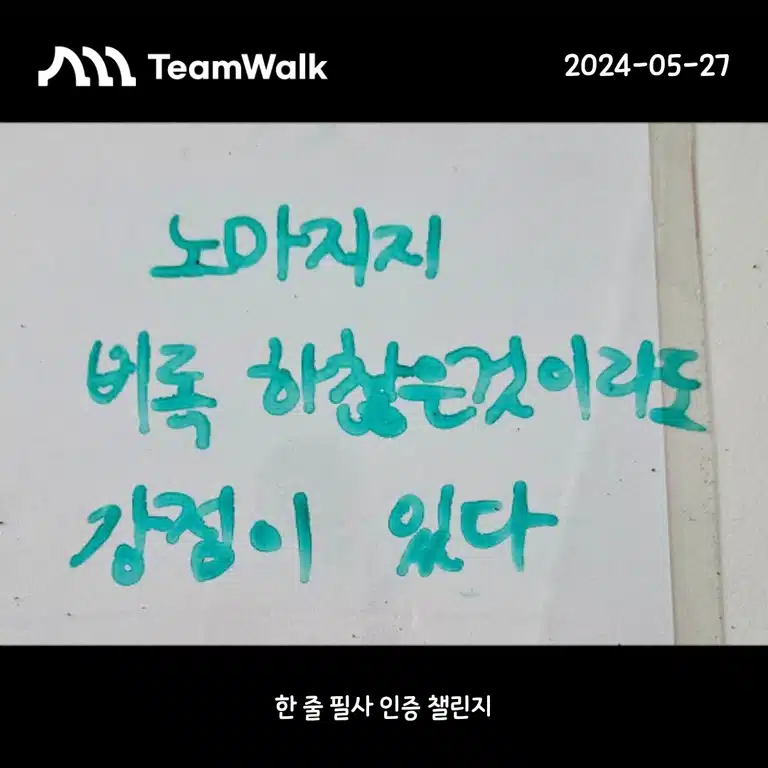 TeamWalk
2024-05-27
노마지지
버록 하찮은것이라도
강점이 있다
한 줄 필사 인증 챌린지